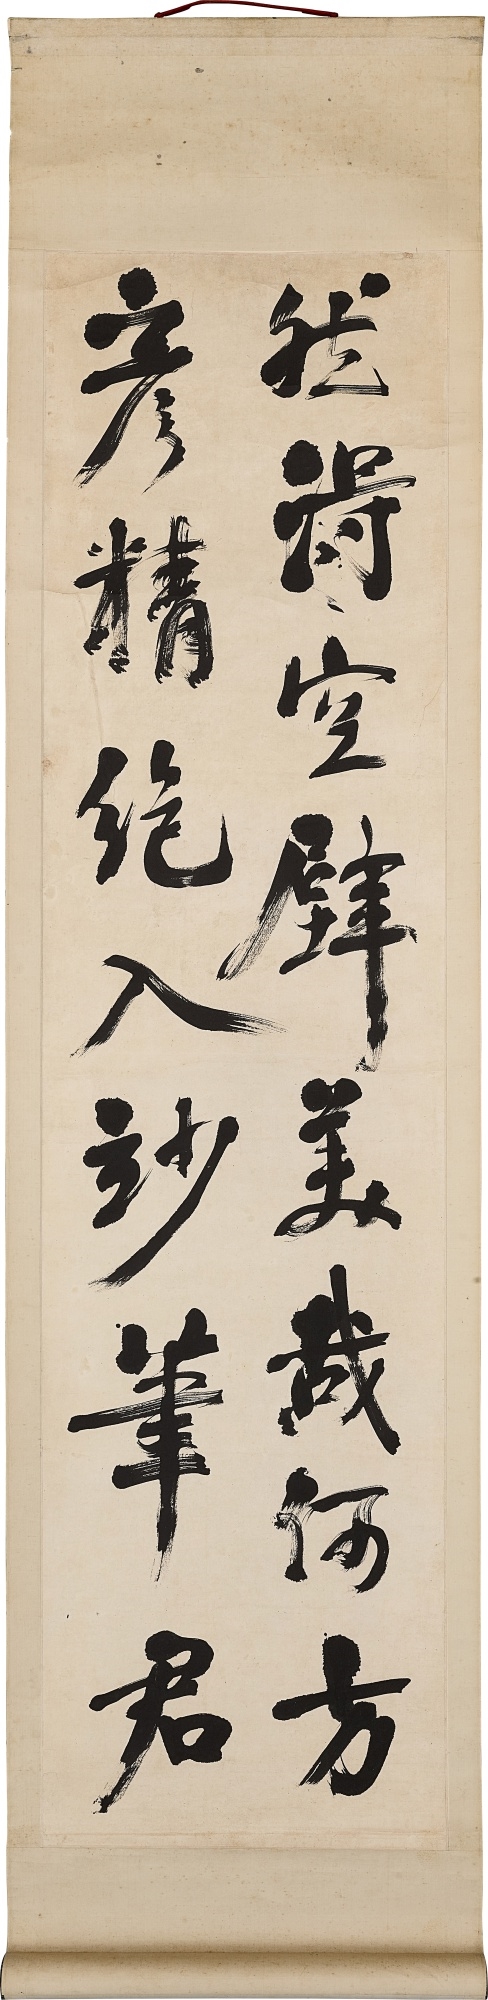 然得空壁美哉何方
彦精絶入妙筆君